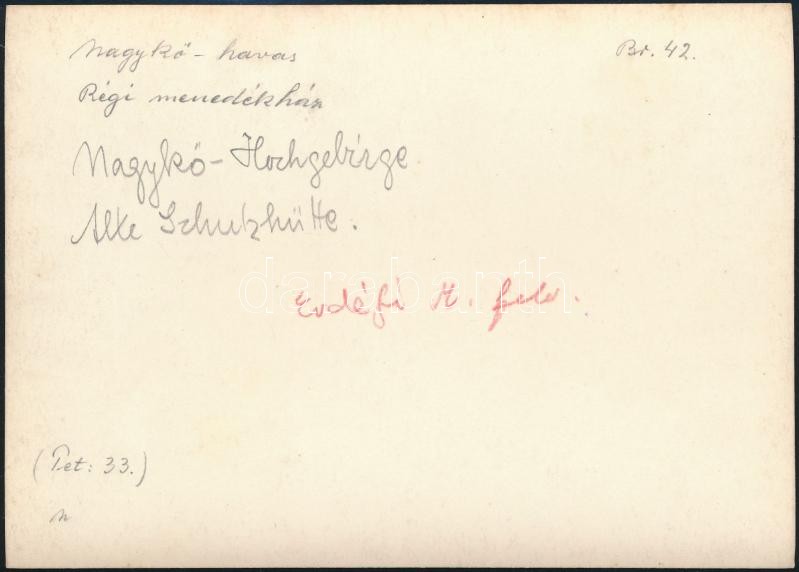 Nagykő - havas
Br. 42.
Régi menedékház
Nagykő - Hochgebirge
Alte Schutzhütte.
darabanth
Erdéfi M. felv.
(Pet: 33.)
n